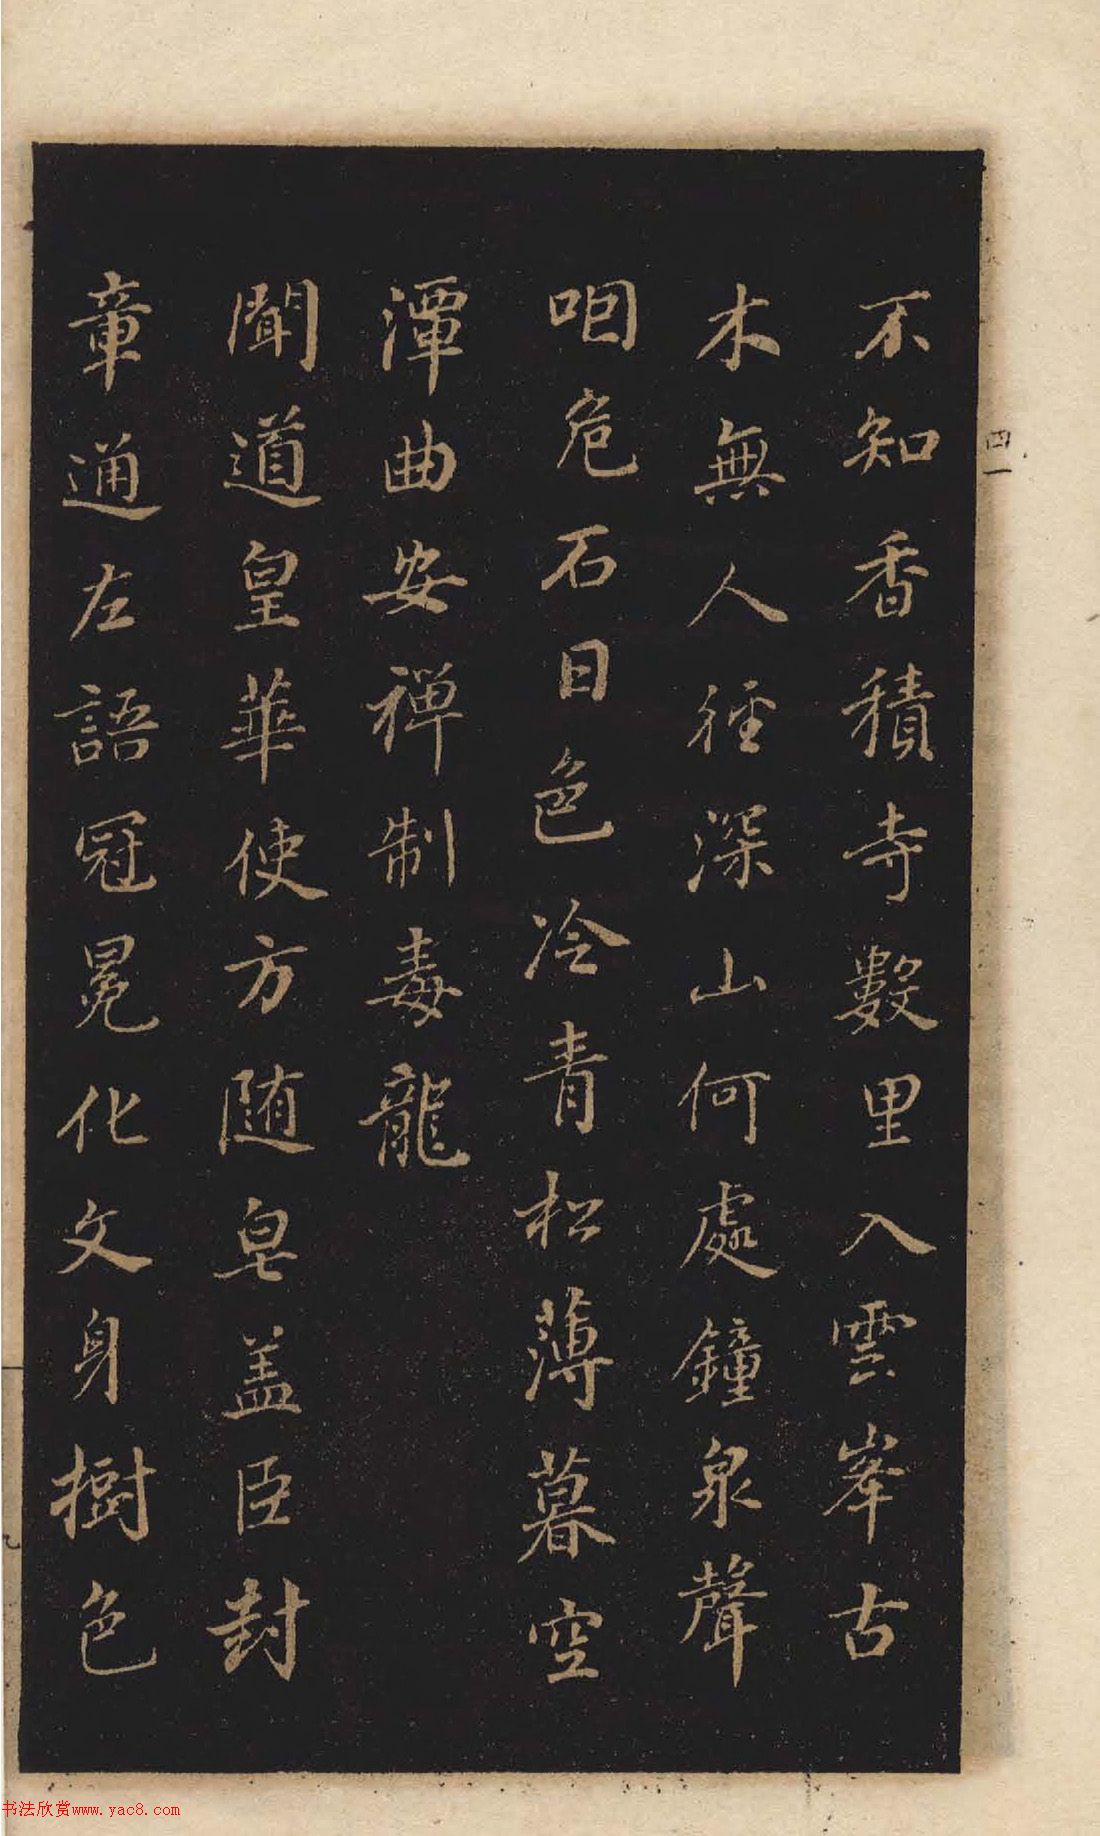 不知香積寺數里入雲峯古
木無人徑深山何處鐘泉聲
咽危石日色冷青松薄暮空
潭曲安禅制毒龍
聞道皇華使方随皂盖臣封
章通左語冠冕化文身樹色
四一
九
书法欣赏www.yac8.com